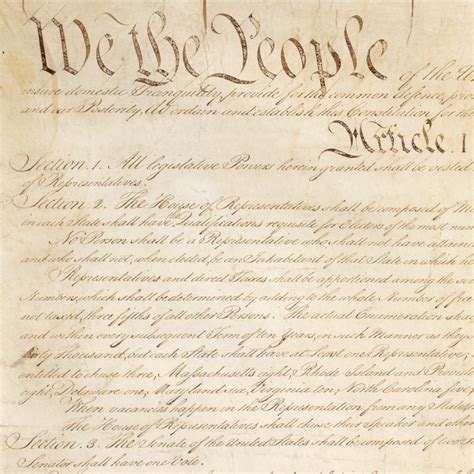 We the People of the U
insure domestic Tranquility, provide for the common defence, pro
and our Posterity, do ordain and establish this Constitution for th
Article. I
Section. 1. All legislative Powers herein granted shall be vest
of Representatives.
Section. 2. The House of Representatives shall be composed of M
in each State shall have the Qualifications requisite for Electors of the most num
No Person shall be a Representative who shall not have attain
and who shall not, when elected, be an Inhabitant of that State in which
Representatives and direct Taxes shall be apportioned among the
Numbers, which shall be determined by adding to the whole Number of f
not taxed, three fifths of all other Persons. The actual Enumeration sha
and within every subsequent Term of ten Years, in such Manner as th
thirty Thousand, but each State shall have at Least one Representative
entitled to chuse three, Massachusetts eight, Rhode Island and Provid
eight, Delaware one, Maryland six, Virginia ten, North Carolina five
When vacancies happen in the Representation from any Stat
The House of Representatives shall chuse their Speaker and othe
Section. 3. The Senate of the United States shall be composed of two
Senator shall have one Vote.